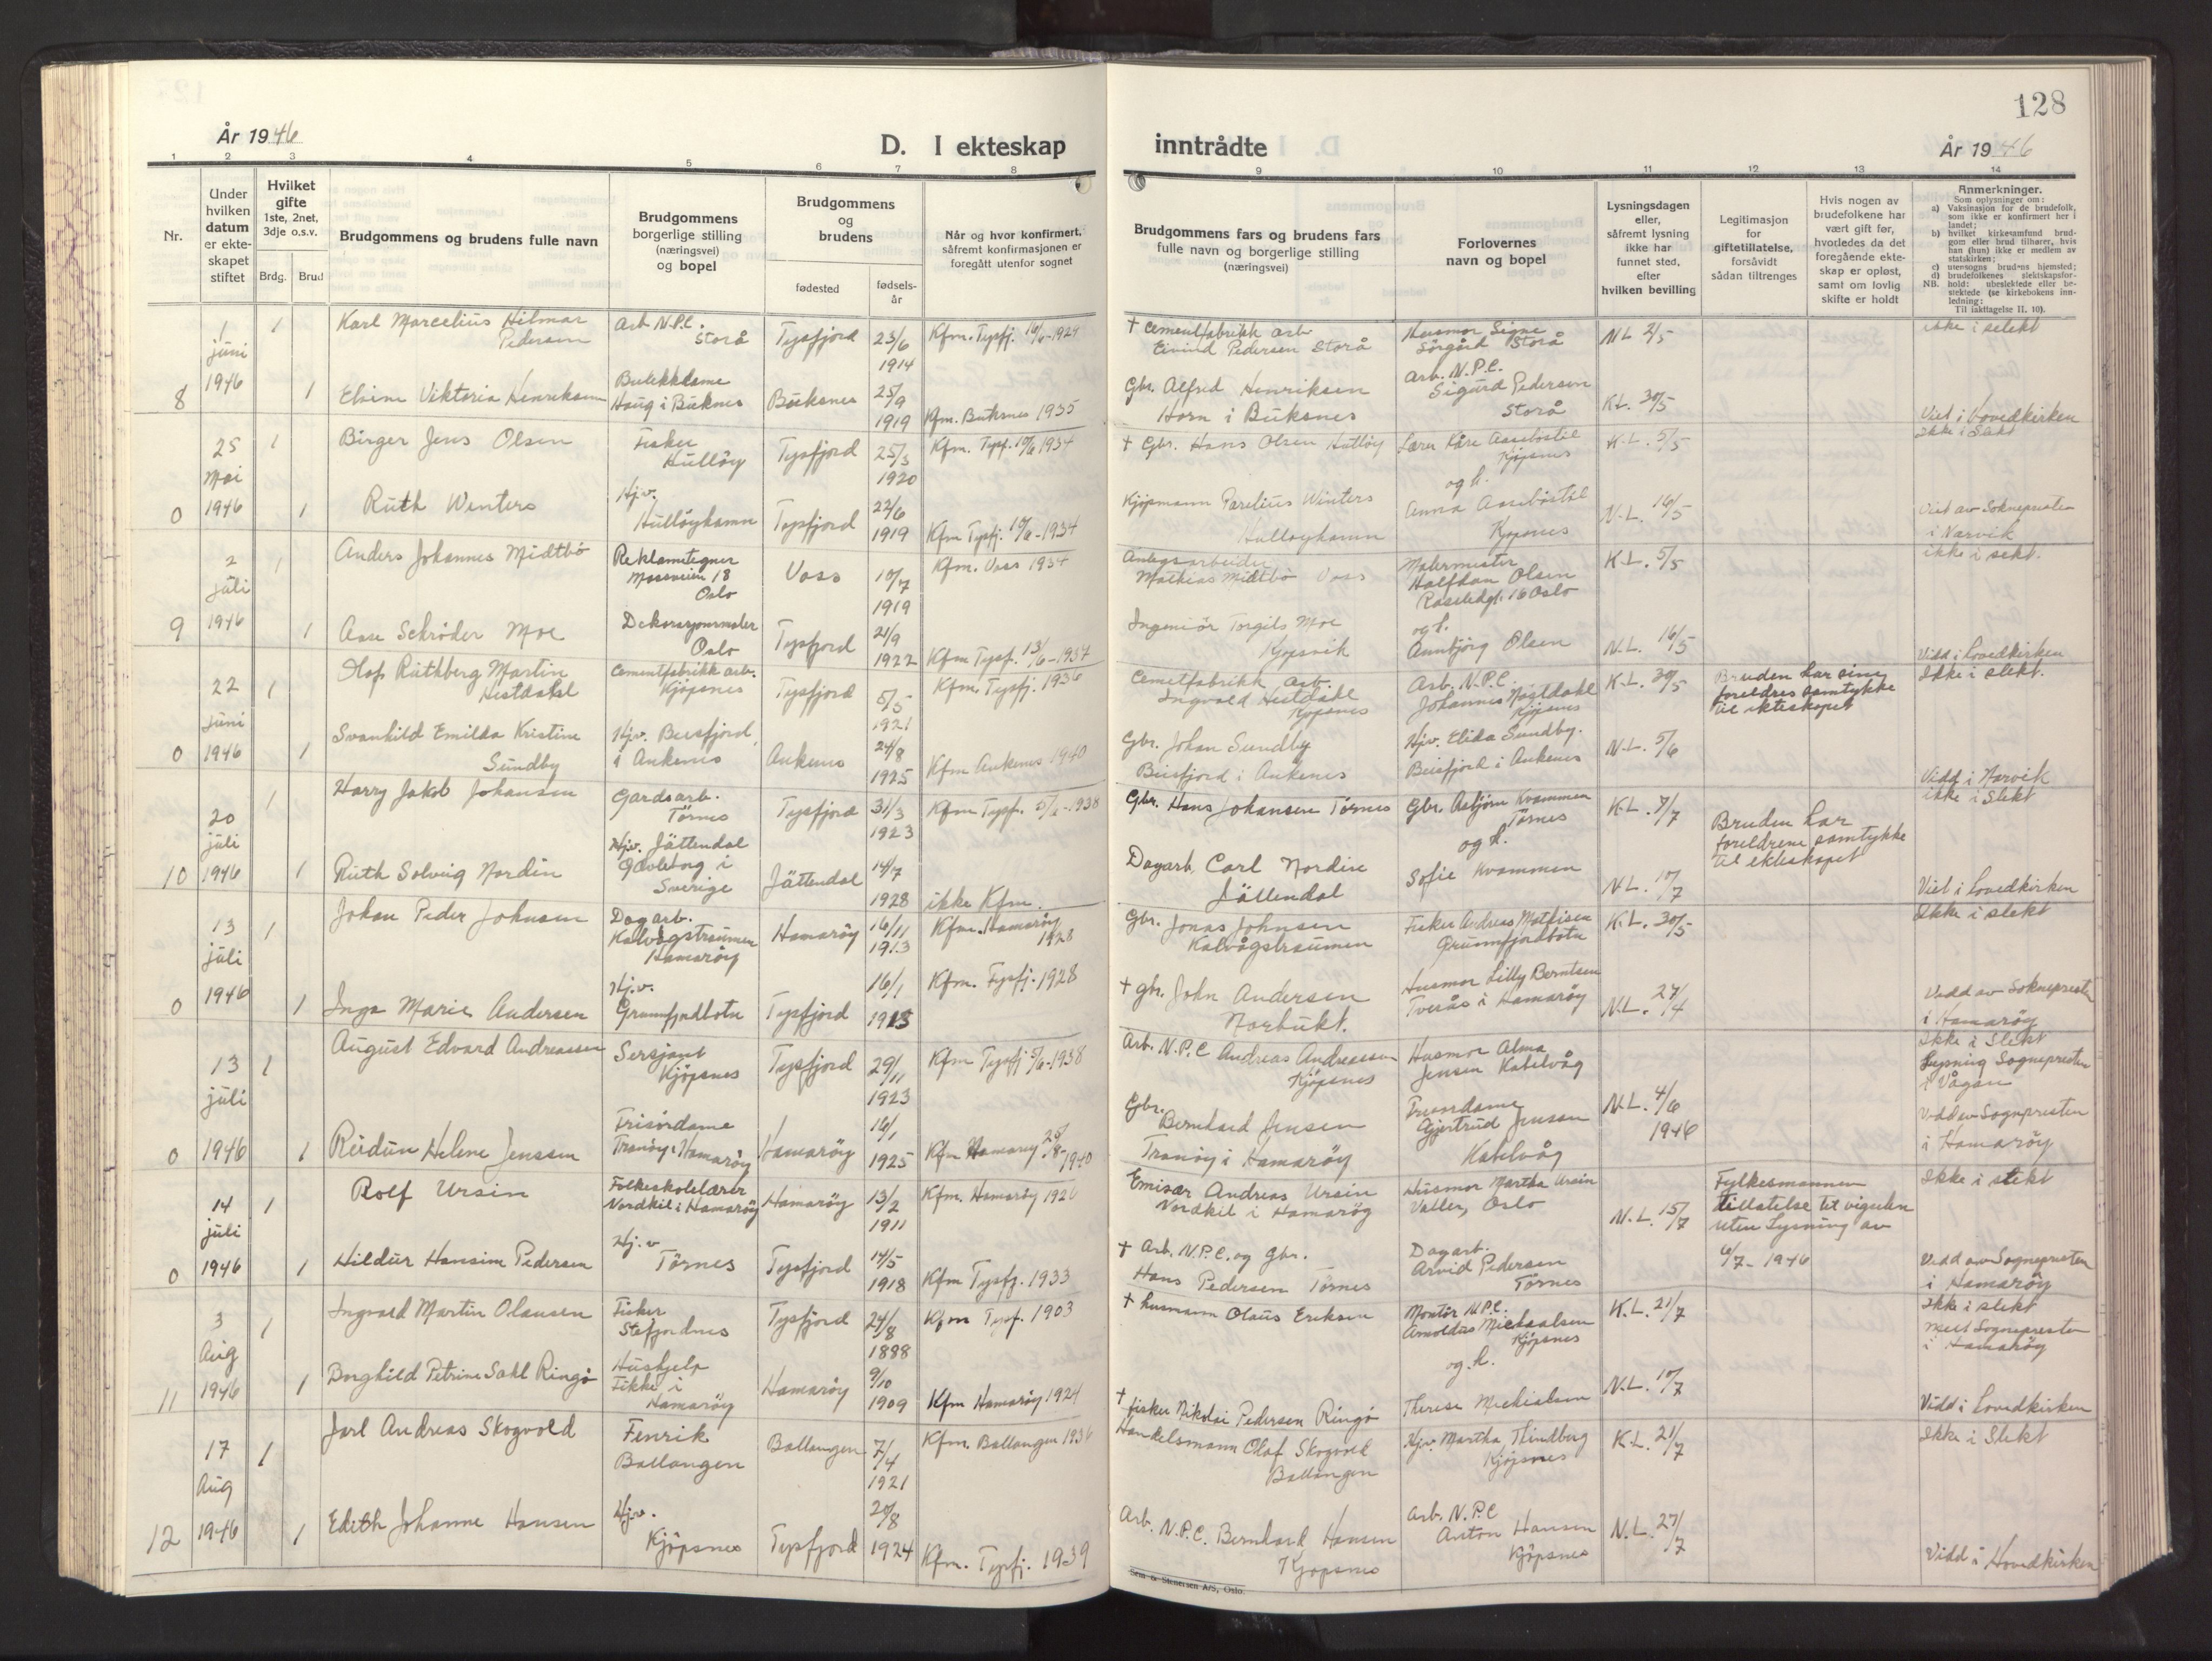 128
År 1946
D. I ekteskap
inntrådte
År 1946
1 2 3 4 5 6 7 8 9 10 11 12 13 14
Nr.
Under
hvilken
datum
er ekte-
skapet
stiftet
Hvilket
gifte
1ste, 2net,
3dje o.s.v.
Brdg. Brud
Brudgommens og brudens fulle navn
Brudgommens
borgerlige stilling
(næringsvei)
og bopel
Brudgommens
og
brudens
fødested
fødsels-
år
Når og hvor konfirmert,
såfremt konfirmasjonen er
foregått utenfor sognet
Brudgommens fars og brudens fars
fulle navn og borgerlige stilling
(næringsvei)
Forlovernes
navn og bopel
Lysningsdagen
eller,
såfremt lysning
ikke har
funnet sted,
efter
hvilken bevilling
Legitimasjon
for
giftetillatelse,
forsåvidt
sådan tiltrenges
Hvis nogen av
brudefolkene har
vært gift før,
hvorledes da det
foregående ekte-
skap er opløst,
samt om lovlig
skifte er holdt
Anmerkninger.
Som oplysninger om:
a) Vaksinasjon for de brudefolk,
som ikke er konfirmert her i
landet;
b) hvilket kirkesamfund brud-
gom eller brud tilhører, hvis
han (hun) ikke er medlem av
statskirken;
c) utensogns brudens hjemsted;
d) brudefolkenes slektskapsfor-
hold: ubeslektede eller be-
slektede (se kirkebokens inn-
ledning;
NB.
Til iakttagelse II, 10).
8
1 juni 1946
1
Karl Marcelius Hilmar
Pedersen
Arb N.P.C.
Storå
Tysfjord
23/6
1914
Kfm. Tysfj. 16/6-1929
† Cementfabrikk arb
Eivind Pedersen Storå
Husmor Signe
Sörgård Storå
N.L. 2/5
ikke i slekt
1
Elvine Viktoria Henriksen
Butikkdame
Haug i Buknes
Buksnes
25/9
1919
Kfm. Buksnes 1935
Gbr. Alfred Henriksen
Horn i Buksnes
Arb. N.P.C.
Sigurd Pedersen
Storå
K.L. 30/5
Viet i Hovedkirken
0
25 Mai 1946
1
Birger Jens Olsen
Fisker
Hullöy
Tysfjord
25/3
1920
Kfm. Tysf. 10/6 1934
† Gbr. Hans Olsen Hulløy
Lærer Kåre Aasebøstøl
Kjøpsnes
og h.
K.L. 5/5
Ikke i Slekt
1
Ruth Winters
Hj.v.
Hullöyhamn
Tysfjord
22/6
1919
Kfm Tysfj. 10/6-1934
Kjøpmann Parelius Winters
Hulloyhamn
Anna Aasebøstøl
Kjøpsnes
N.L. 16/5
Viet av Sokneprесten
i Narvik
9
2 juli 1946
1
Anders Johannes Midtbö
Reklametegner
Mossveien 18
Oslo
Voss
10/7
1919
Kfm. Voss 1934
Anlegsarbeider
Mathias Midtbö Voss
Malermester
Halfdan Olsen
Rosteds gt. 16 Oslo
og h.
K.L. 5/5
ikke i sekt.
1
Aase Schröder Moe
Dekorasjonsmaler
Oslo
Tysfjord
21/9
1922
Kfm Tysf. 13/6-1937
Ingeniör Torgils Moe
Kjøpsvik
Annbjørg Olsen
N.L. 16/5
Vidd i Hovedkirken
0
22 juni 1946
1
Olaf Ruthberg Martin
Hestdahl
Cementfabrikk arb.
Kjöpsnes
Tysfjord
5/5
1921
Kfm. Tysfj. 1936
Cemetfabrikk arb.
Ingvald Hestdahl
Kjöpsnes
Arb. N.P.C.
Johannes Hestdahl
Kjöpsnes
K.L. 30/5
Bruden har sine
foreldres samtykke
til ekteskapet
Ikke i slekt.
1
Svanhild Emilda Kristine
Sundby
Hjv. Beisfjord,
i Ankenes
Ankenes
24/8
1925
Kfm Ankenes 1940
Gbr. Johan Sundby
Beisfjord i Ankenes
Hjv. Elida Sundby.
Beisfjord i Ankenes
N.L. 5/6
Vidd i Narvik
10
20 juli 1946
1
Harry Jakob Johansen
Gardsarb.
Törnes
Tysfjord
31/3
1923
Kfm Tysf. 5/6-1938
Gbr. Hans Johansen Törnes
Gbr. Asbjörn Kvammen
Törnes
og h.
K.L. 7/7
Bruden har
foreldrene samtykke
til ekteskapet
ikke i slekt
1
Ruth Solveig Nordin
Hjv. Jättendal
Gävleborg i
Sverige
Jättendal
14/7
1928
ikke Kfm.
Dagarb. Carl Nordin
Jättendal
Sofie Kvammen
N.L. 10/7
Viet i Hovedkirken
0
13 juli 1946
1
Johan Peder Johnsen
Dagarb.
Kalvågstraumen
Hamaröy
Hamaröy
16/11
1913
Kfm. Hamaröy
1928
Gbr. Jonas Johnsen
Kalvågstraumen
Fisker Andreas Mathisen
Grunnfjordbotn
K.L. 30/5
Ikke i slekt
1
Inga Marie Andersen
Hj.v.
Grunnfjordbotn
Tysfjord
16/1
1913
Kfm. Tysfj. 1928
† gbr. John Andersen
Norbukt.
Husmor Lilly Berntsen
Tverås i Hamaröy
N.L. 27/4
Vidd av Sokneprесten
i Hamaröy
0
13 juli 1946
1
August Edvard Andreassen
Sersjant
Kjöpsnes
Tysfjord
29/11
1923
Kfm Tysfj 5/6-1938
Arb. N.P.C Andreas Andreassen
Kjöpsnes
Husmor Alma
Jensen Kabelvåg
Ikke i Slekt
Lysning Sognepresten
i Vågan
1
Reidun Helene Jenssen
Frisördame
Tranöy i Hamaröy
Hamaröy
16/1
1925
Kfm Hamaröy 25/8-1940
Gbr.
Bernhard Jensen
Tranöy i Hamaröy
Gjertrud Jensen
Kabelvåg
N.L. 4/6
1946
Vidd av Sognepresten
i Hamaröy
0
14 juli 1946
1
Rolf Ursin
Folkeskolelærer
Nordkil i Hamaröy
Hamaröy
13/2
1911
Kfm. Hamaröy 1926
Emisær Andreas Ursin
Nordkil i Hamaröy
Husmor Martha Ursin
Valler, Oslo
N.L. 15/7
Fylkesmannen
tillatelse til vigselen
uten Lysning av
6/7-1946
Ikke i slekt
1
Hildur Hansine Pedersen
Hj.v
Törnes
Tysfjord
14/5
1918
Kfm Tysfj. 1933
† Arb. N.P.C. og Gbr.
Hans Pedersen Törnes
Dagarb.
Arvid Pedersen
Törnes
Vidd av Sognepresten
i Hamaröy
11
3 Aug 1946
1
Ingvald Martin Olausen
Fisker
Stefjordnes
Tysfjord
24/8
1888
Kfm Tysf. 1903
† husmann Olaus Eriksen
Montör N.P.C.
Arnoldus Michaelsen
Kjöpsnes
og h.
K.L. 21/7
Ikke i slekt
Sognepresten
i Hamaröy
1
Borghild Petrine Dahl Ringö
Hushjelp
Fikke i
Hamaröy
Hamaröy
9/10
1909
Kfm Hamaröy 1924
† fisker Nikolai Pedersen Ringö
Therese Michaelsen
N.L. 10/7
Vidd i Hovedkirken
12
17 Aug 1946
1
Jarl Andreas Skogvold
Fenrik
Ballangen
Ballangen
7/4
1921
Kfm. Ballangen 1936
Handelsmann Olaf Skogvold
Ballangen
Hjv. Martha Thindberg
Kjöpsnes
K.L. 21/7
Ikke i Slekt
1
Edith Johanne Hansen
Hjv.
Kjöpsnes
Tysfjord
20/8
1924
Kfm. Tysfj. 1939
Arb. N.P.C. Bernhard Hansen
Kjopsnes
Arb. N.P.C
Anton Hansen
Kjöpsnes
N.L. 27/7
Vidd i Hovedkirken
Sem & Stenersen A/S, Oslo.